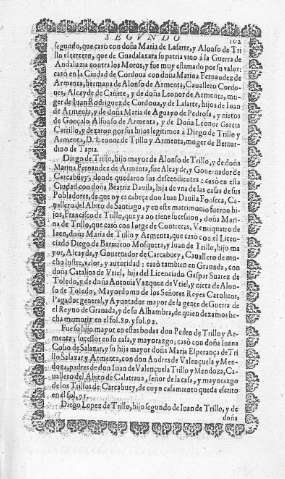 SEGVNDO
segundo, que casò con doña Maria de Lasarte, y Alonso de Tri
llo el tercero, que de Guadalaxara su patria vino à la Guerra de
Andaluzia contra los Moros, y fue muy estimado por su valor:
casò en la Ciudad de Cordoua con doña Marina Fernandez de
Armenta, hermana de Alonso de Armenta, Cauallero Cordo-
ues, Alcayde de Cañete, y de doña Leonor de Armenta, mu-
ger de Iuan Rodriguez de Cordoua, y de Lasarte, hijos de Iuan
de Armenta, y de doña Maria de Aguayo de Pedrosa, y nietos
de Gonçalo Alfonso de Armenta, y de Doña Leonor Garcia
Carrillo, y dexaron por sus hijos legitimos à Diego de Trillo y
Armenta, D. Leonor de Trillo y Armenta, muger de Bartu-
dino de Tapia.
Diego de Trillo, hijo mayor de Alonso de Trillo, y de doña
Marina Fernandez de Armenta, fue Alcayde, y Gouernador de
Carcabuey, donde quedaron sus descendientes: casò en esta
Ciudad con doña Beatriz Dauila, hija de vna de las casas de sus
Pobladores, de que oy es cabeça don Iuan Dauila Fonseca, Ca-
uallero del Abito de Santiago, y en este matrimonio fueron hi-
jos, Francisco de Trillo, que ya no tiene sucession, doña Mari-
na de Trillo, que casò con Iorge de Contreras, Veintiquatro de
Iaen, doña Maria de Trillo y Armenta, que casò con el Licen-
ciado Diego de Barueiros Mosquera, y Iuan de Trillo, hijo ma-
yor, Alcayde, y Gouernador de Carcabuey, Cauallero de mu-
cho lustre, valor, y autoridad; casò tambien en Granada, con
doña Catalina de Vriel, hija del Licenciado Gaspar Suarez de
Toledo, y de doña Antonia Vazquez de Vriel, y nieta de Alon-
so de Toledo, Mayordomo de los Señores Reyes Catolicos,
Pagador general, y Ayuntador mayor de la gente de Guerra de
el Reyno de Granada, y de su Alhambra, de quien dexamos he-
cha memoria en el fol.
Fue su hijo mayor en estas bodas don Pedro de Trillo y Ar-
menta, sucessor en su casa, y mayorazgo, casò con doña Iuana
Cobo de Salazar, y su hija mayor doña Maria Esperança de Tri
llo Salazar y Armenta, con don Andres de Valençuela y Men-
doça, padres de don Iuan de Valençuela Trillo y Mendoça, Ca-
uallero del Abito de Calatraua, señor de la casa, y mayorazgo
de los Trillos de Carcabuey, de cuyo casamiento queda escrito
en el fol.
Diego Lopez de Trillo, hijo segundo de Iuan de Trillo, y de
doña